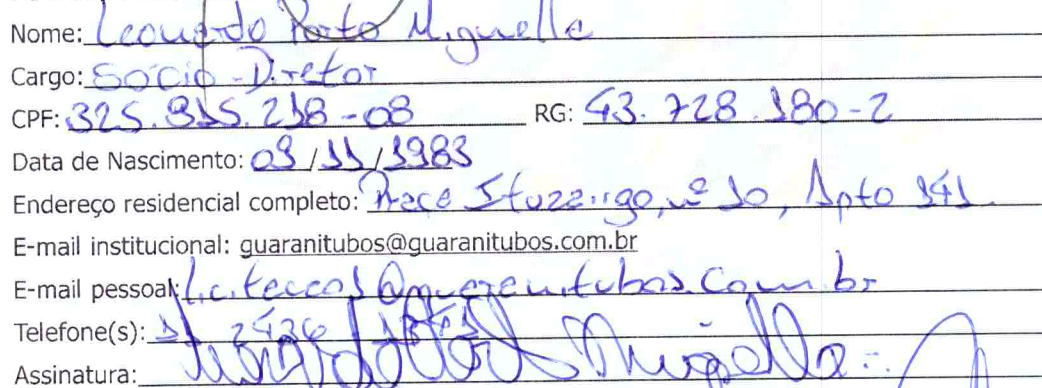 Nome: Leonardo Porto Miguelle
Cargo: Sócio-Diretor
CPF: 325.815.218-08 RG: 43.728.180-2
Data de Nascimento: 09/11/1983
Endereço residencial completo: nº 10, Apto 141.
E-mail institucional: guaranitubos@guaranitubos.com.br
E-mail pessoal: @guaranitubos.com.br
Telefone(s): 11 2436
Assinatura: